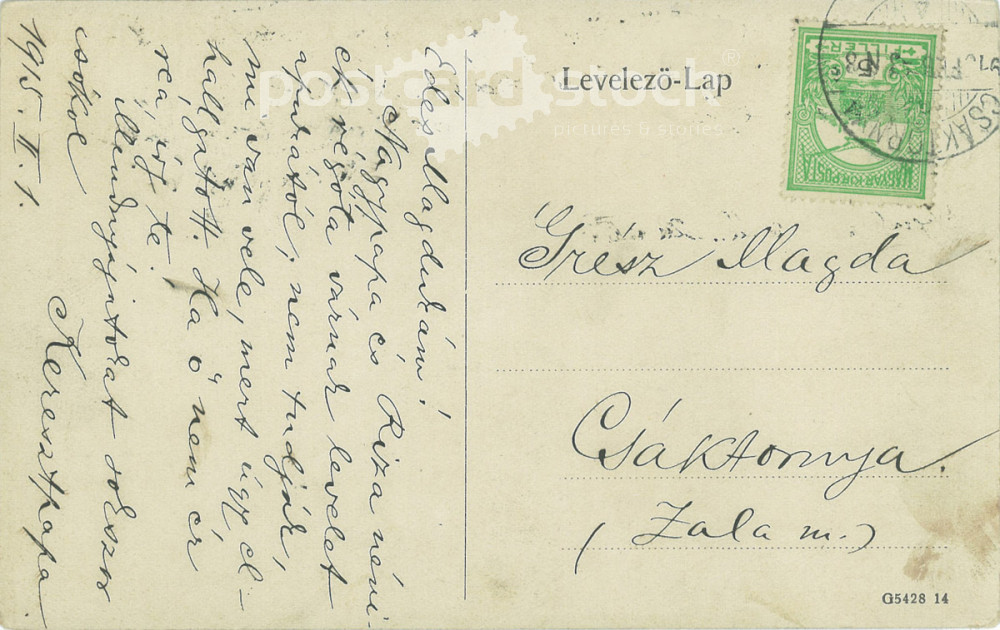 Édes Magdukám!
Nagypapa és Riza néni-
ék régóta várnak levelet
apukától, nem tudják,
mi van vele, mert úgy el-
hallgatott. Ha ő nem ér
reá, írj te!
Mindnyájatokat sokszor
csókol
Keresztpapa.
1915. II. 1.
Levelező-Lap
MAGYAR KIR. POSTA
FILLÉR
CSÁKTORNYA
Gresz Magda
Csáktornya.
(Zala m.)
G5428 14
postcard stock®
pictures & stories